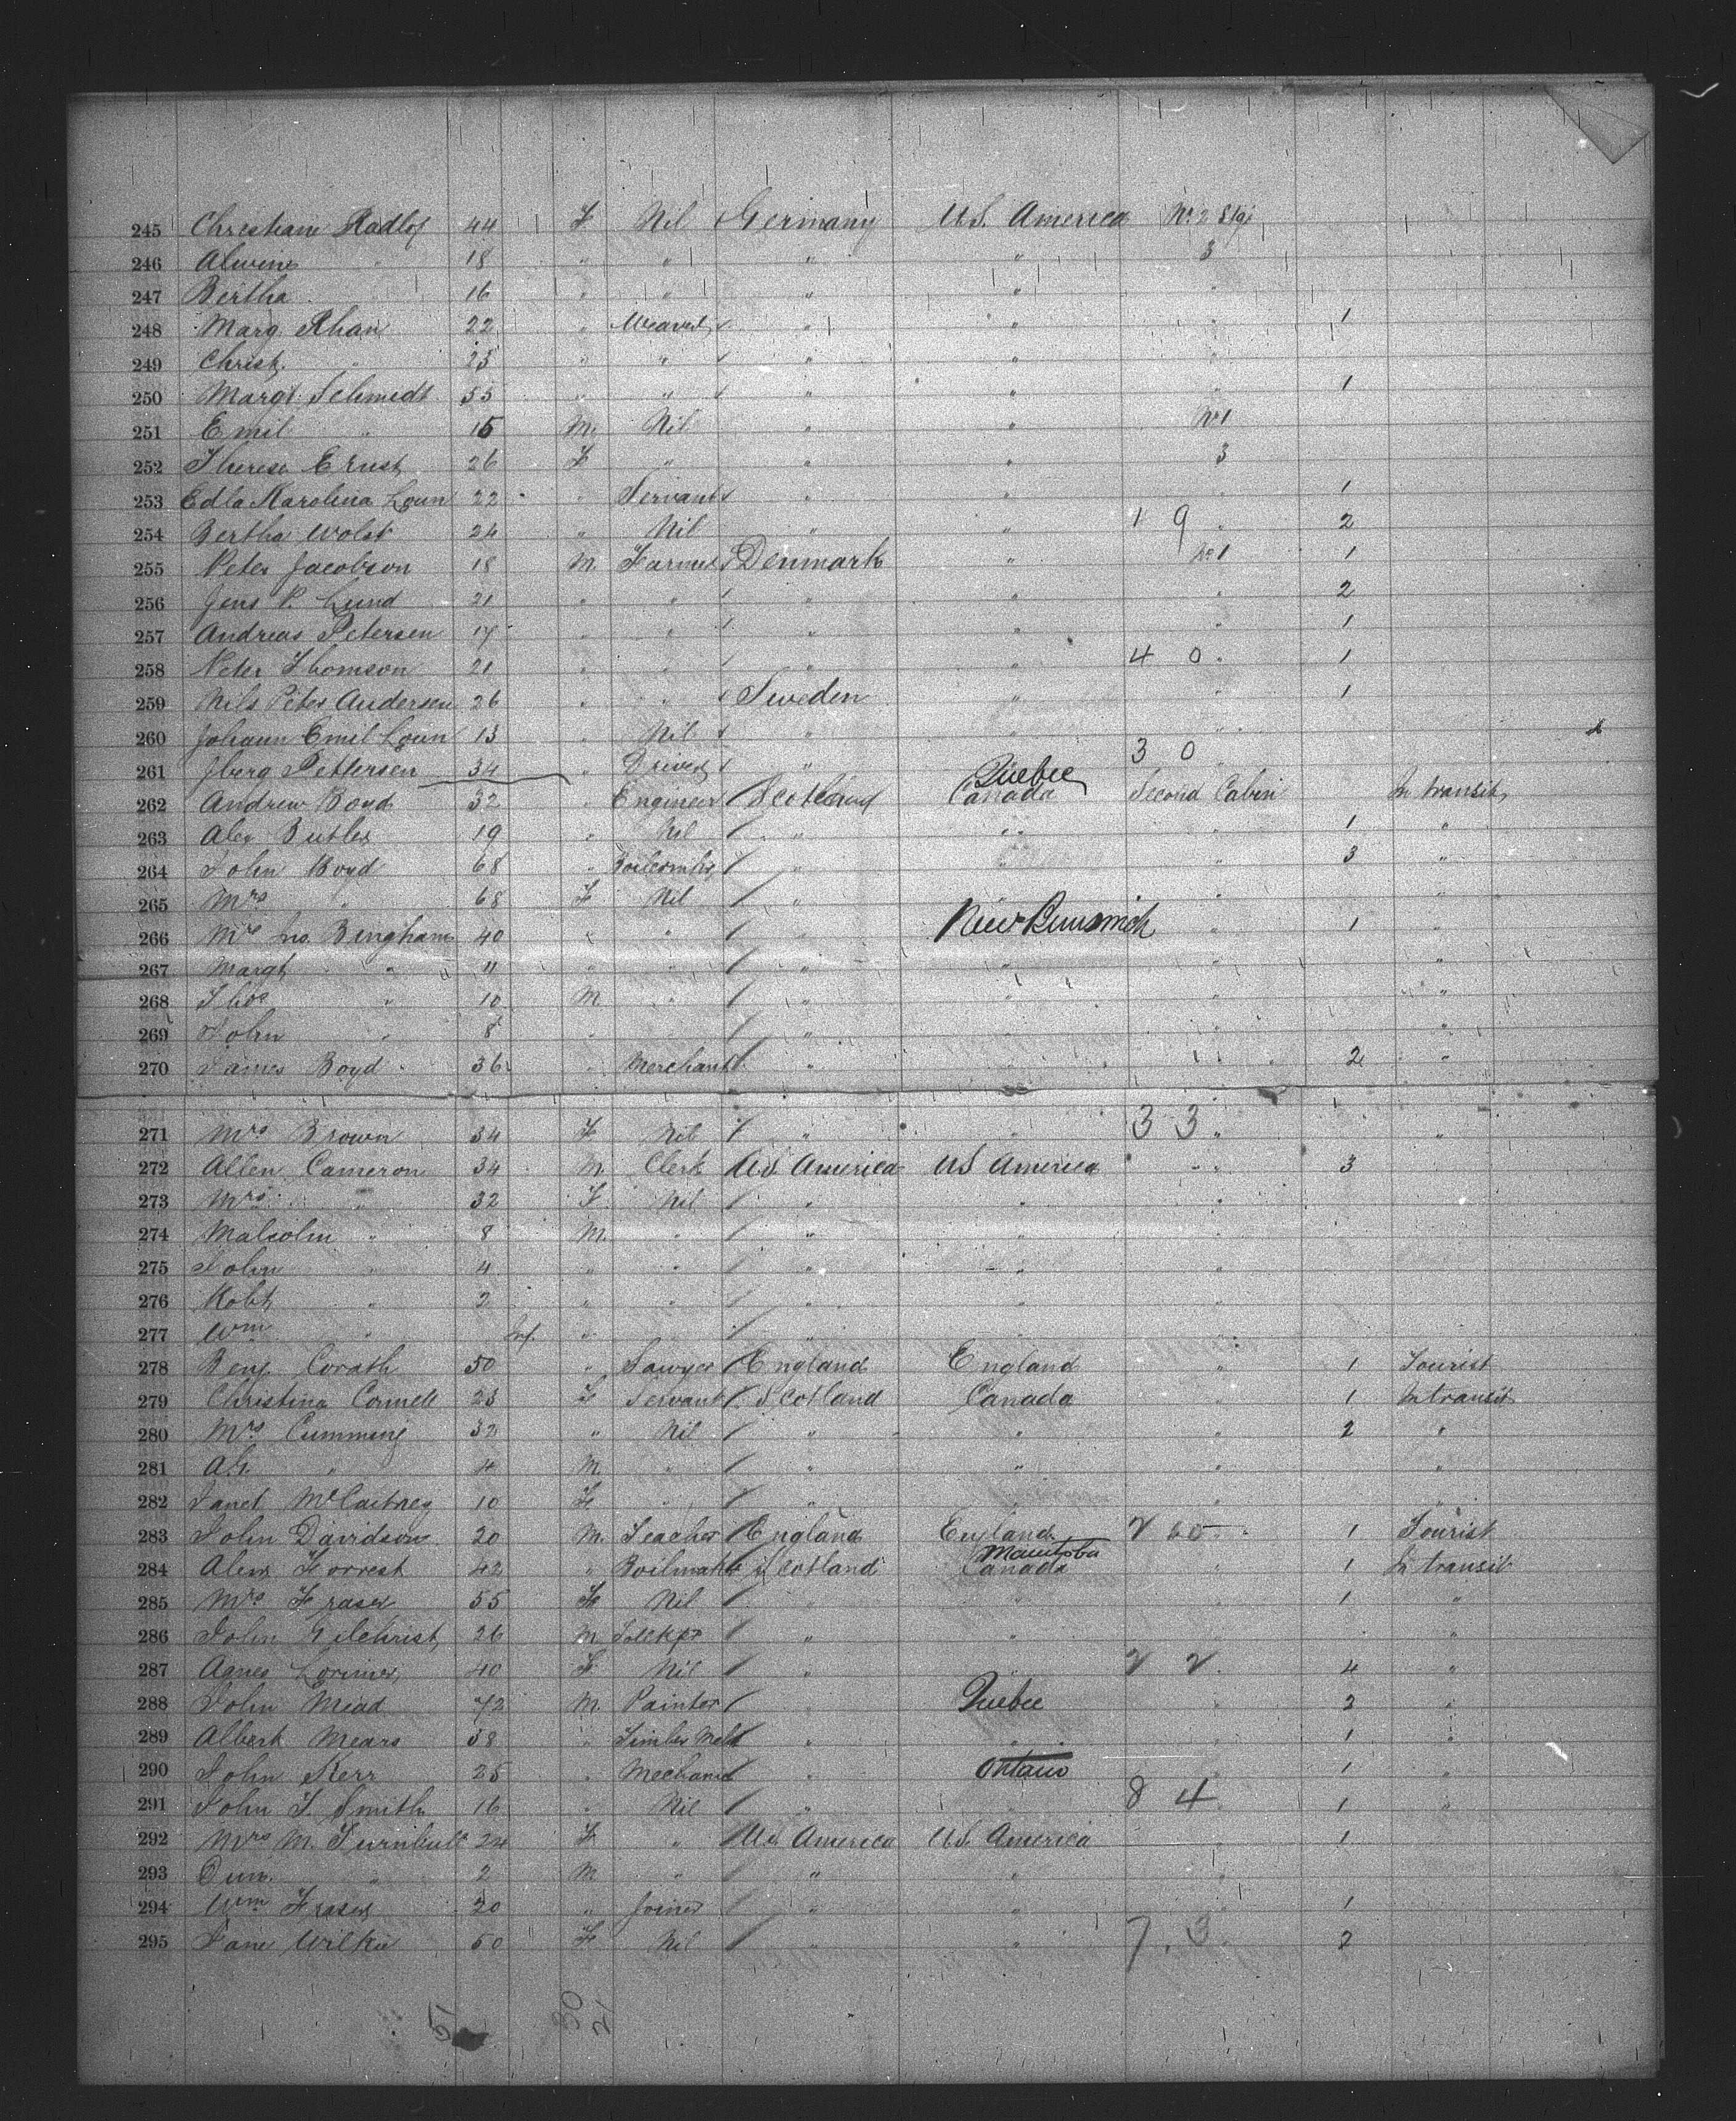 245 Christiane Radlof 44 F Nil Germany U.S. America No. 2 Stg.
246 Alwine " 18 " " " " 3
247 Bertha 16 " " " " "
248 Marg. Rhan 22 " Weaver " " " 1
249 Christ. " 25 " " " " "
250 Margt. Schmidt 55 " " " " " 1
251 Emil " 15 M. Nil " " No 1
252 Therese Ernst 26 F " " " 3
253 Edla Karolina Loun 22 " Servant " " " 1
254 Bertha Wolst 24 " Nil " " 1 9 " 2
255 Peter Jacobson 18 M. Farmer Denmark " No 1 1
256 Jens P. Lund 21 " " " " " 2
257 Andreas Petersen 17 " " " " " 1
258 Peter Thomson 21 " " " " 4 0 " 1
259 Nils Peter Andersen 26 " " Sweden " " 1
260 Johann Emil Loun 13 " Nil " " "
261 Jberg Pettersen 34 " Driver " 3 0
Quebec
262 Andrew Boyd 32 " Engineer Scotland Canada Second Cabin In transit
263 Alex Butler 19 " Nil " " " 1 "
264 John Boyd 68 " " " 3 "
265 Mrs " 68 F Nil " " "
266 Mrs Bingham 40 " " " New Brunswick " 1 "
267 Margt " 11 " " " " " "
268 Thos " 10 M " " " " "
269 John " 8 " " " " "
270 James Boyd 36 " Merchant " " 2 "
271 Mrs Brown 34 F Nil " " 3 3 " "
272 Allen Cameron 34 M. Clerk U.S. America US America " 3
273 Mrs " 32 F. Nil " " "
274 Malcolm " 8 M. " " " "
275 John " 4 " " " " "
276 Robt " 2 " " " " "
277 Wm " Inf. " " " "
278 Benj. Corath 50 " Sawyer England England " 1 Tourist
279 Christina Cornell 23 F Servant Scotland Canada " 1 In transit
280 Mrs Cumming 32 " Nil " " " 2 "
281 " 4 M " " " " "
282 Janet McCartney 10 F " " " "
283 John Davidson 20 M. Teacher England England 1 Tourist
Manitoba
284 Alexr Forrest 42 " Boilmaker Scotland Canada " 1 In transit
285 Mrs Fraser 55 F Nil " " " 1 "
286 John Gilchrist 26 M " " "
287 Agnes Lorimer 40 F. Nil " 2 2 4 "
288 John Mead 72 M. Painter " Quebec " 2 "
289 Albert Mears 58 " Timber Mcht " " " 1 "
290 John Kerr 25 " Mechanic " Ontario " 1 "
291 John T. Smith 16 " Nil " 8 4 1 "
292 Mrs M. Turnbull 24 F. " U.S. America U.S. America " 1
293 Dun. " 2 M " " " "
294 Wm Fraser 20 " Joiner " " " 1
295 Jane Wilkie 50 F Nil " " 7. 3 2
51
30
21